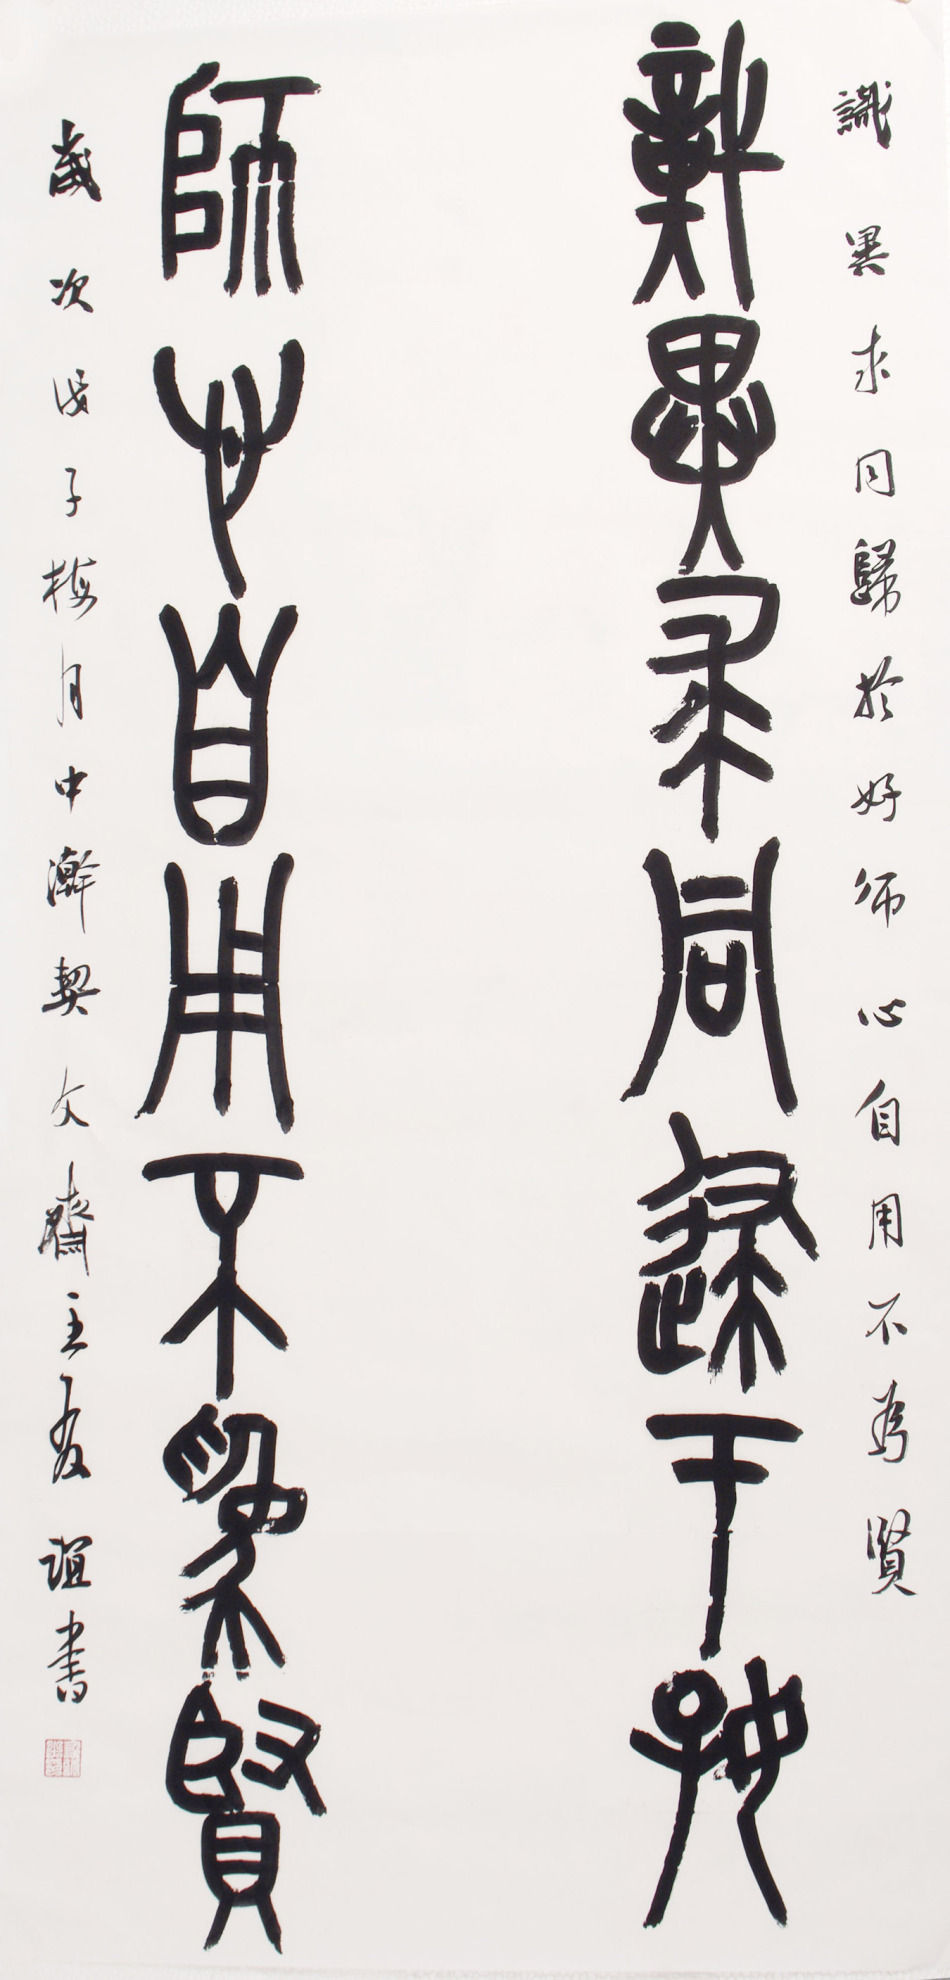 識異求同歸於好師心自用不為賢
識異求同歸于好
師心自用不為賢
歲次戊子梅月中澣契文齋主誼書